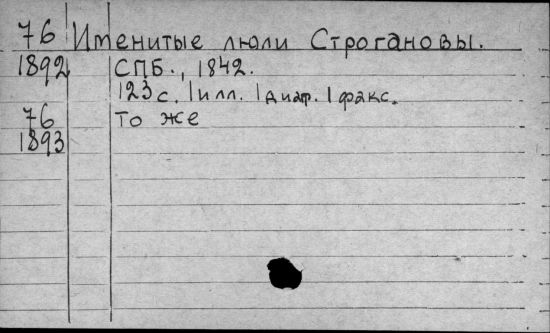 76 Именитые люли Строгановы.
1892 СПБ., 1842.
123 с. 1 илл. 1 диагр. 1 факс.
76 то же
1893